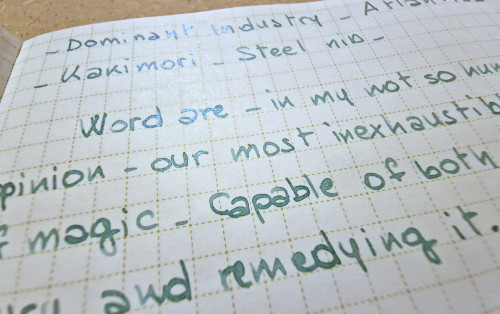 - Dominant Industry -
- Kakimori - Steel nib -
Word are - in my not so
pinion - our most
magic - Capable of both
and remedying it.